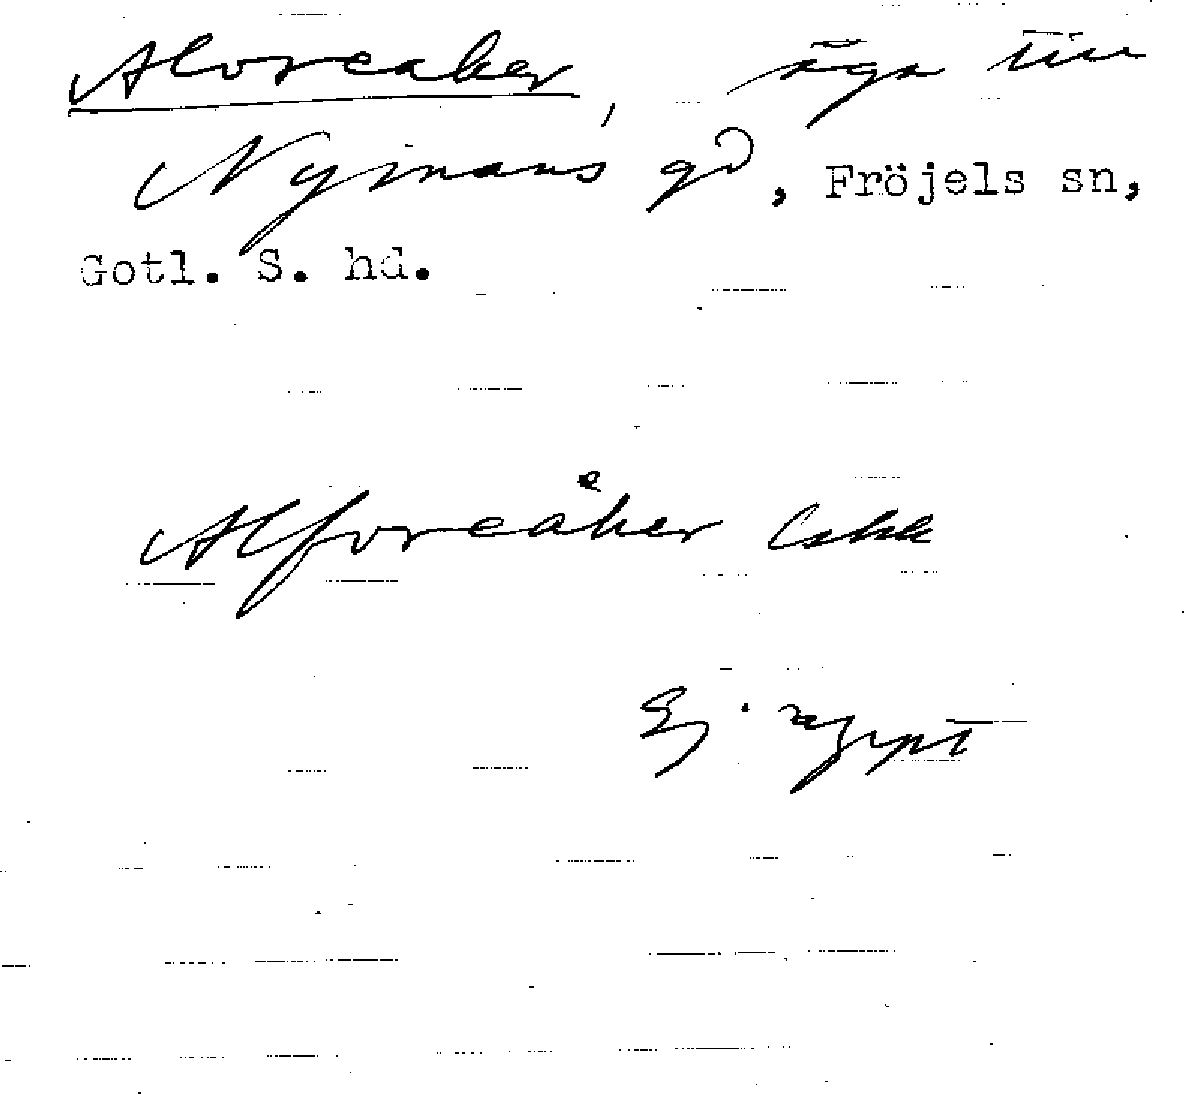 Alvreaker, äga till
Nymans gd, Fröjels sn,
Gotl. S. hd.
Alfvreåker Lskk
Ej uppt